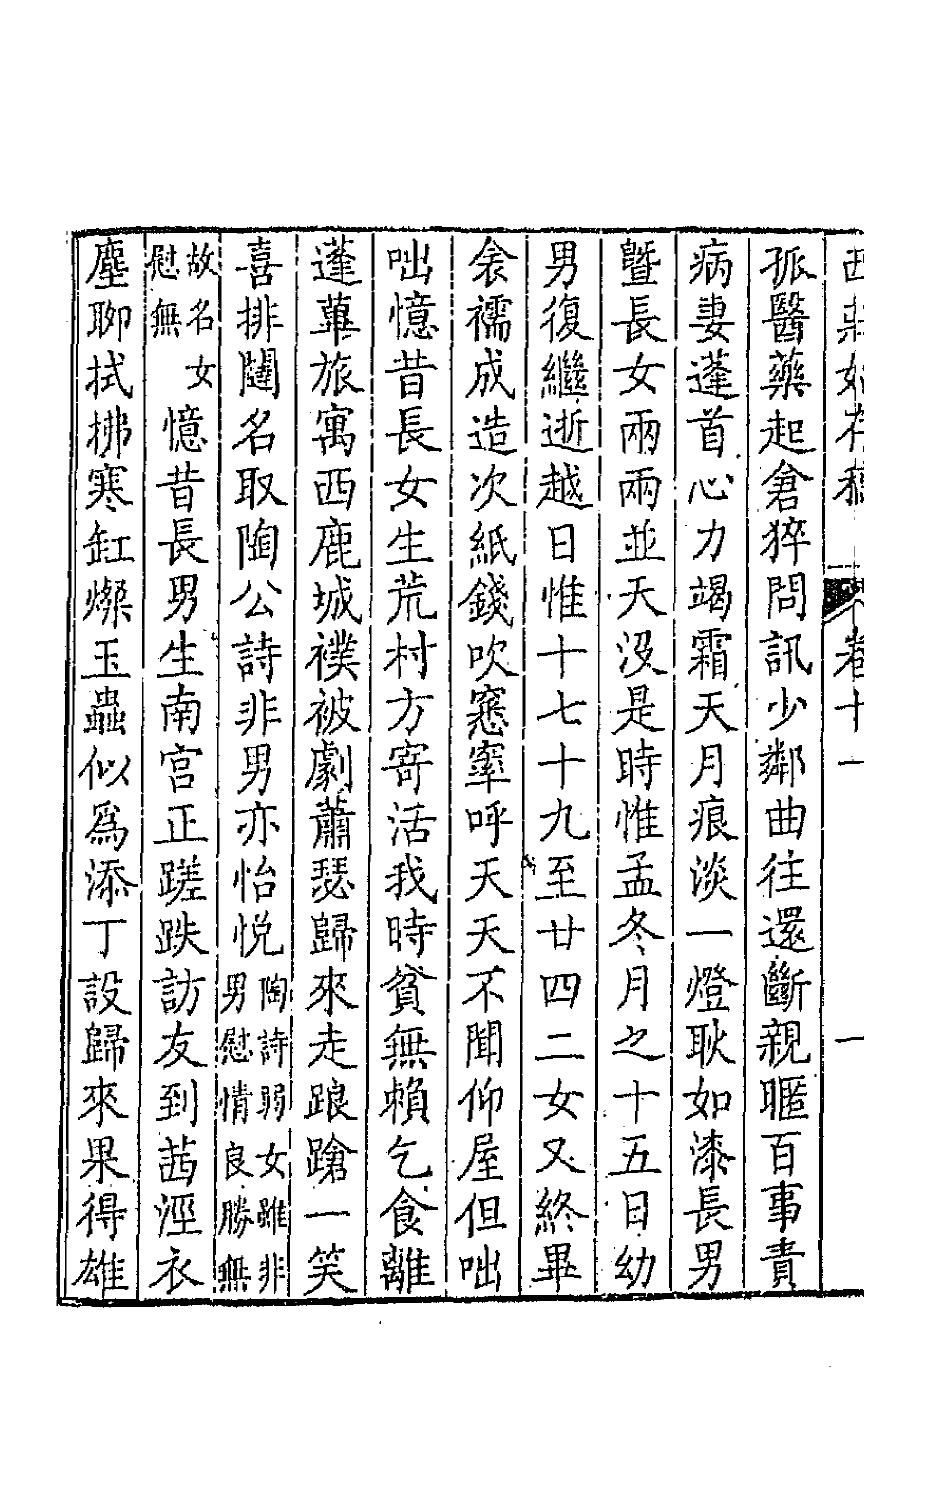 卷十一　一
孤醫藥起倉猝問訊少鄰曲往還斷親暱百事責
病妻蓬首心力竭霜天月痕淡一燈耿如漆長男
暨長女兩兩並夭沒是時惟孟冬月之十五日幼
男復繼逝越日惟十七十九至廿四二女又終畢
衾襦成造次紙錢吹窸窣呼天天不聞仰屋但咄
咄憶昔長女生荒村方寄活我時貧無賴乞食離
蓬蓽旅寓西鹿城襆被劇蕭瑟歸來走踉蹌一笑
喜排闥名取陶公詩非男亦怡悅陶詩弱女雖非男慰情良勝無
故名女慰無憶昔長男生南宮正蹉跌訪友到茜涇衣
塵聊拭拂寒缸燦玉蟲似為添丁設歸來果得雄